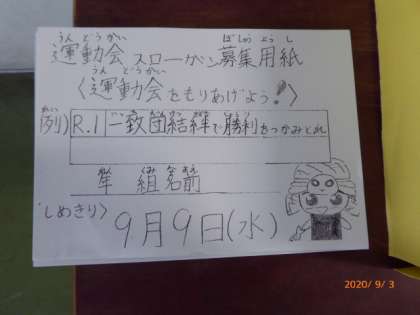 運動会スローガン募集用紙
うんどうかい ぼしゅうようし
〈運動会をもりあげよう!〉
うんどうかい
例) R.1 一致団結絆で勝利をつかみとれ
年 組 名前
しめきり〉
9月9日(水)
2020/ 9/ 3